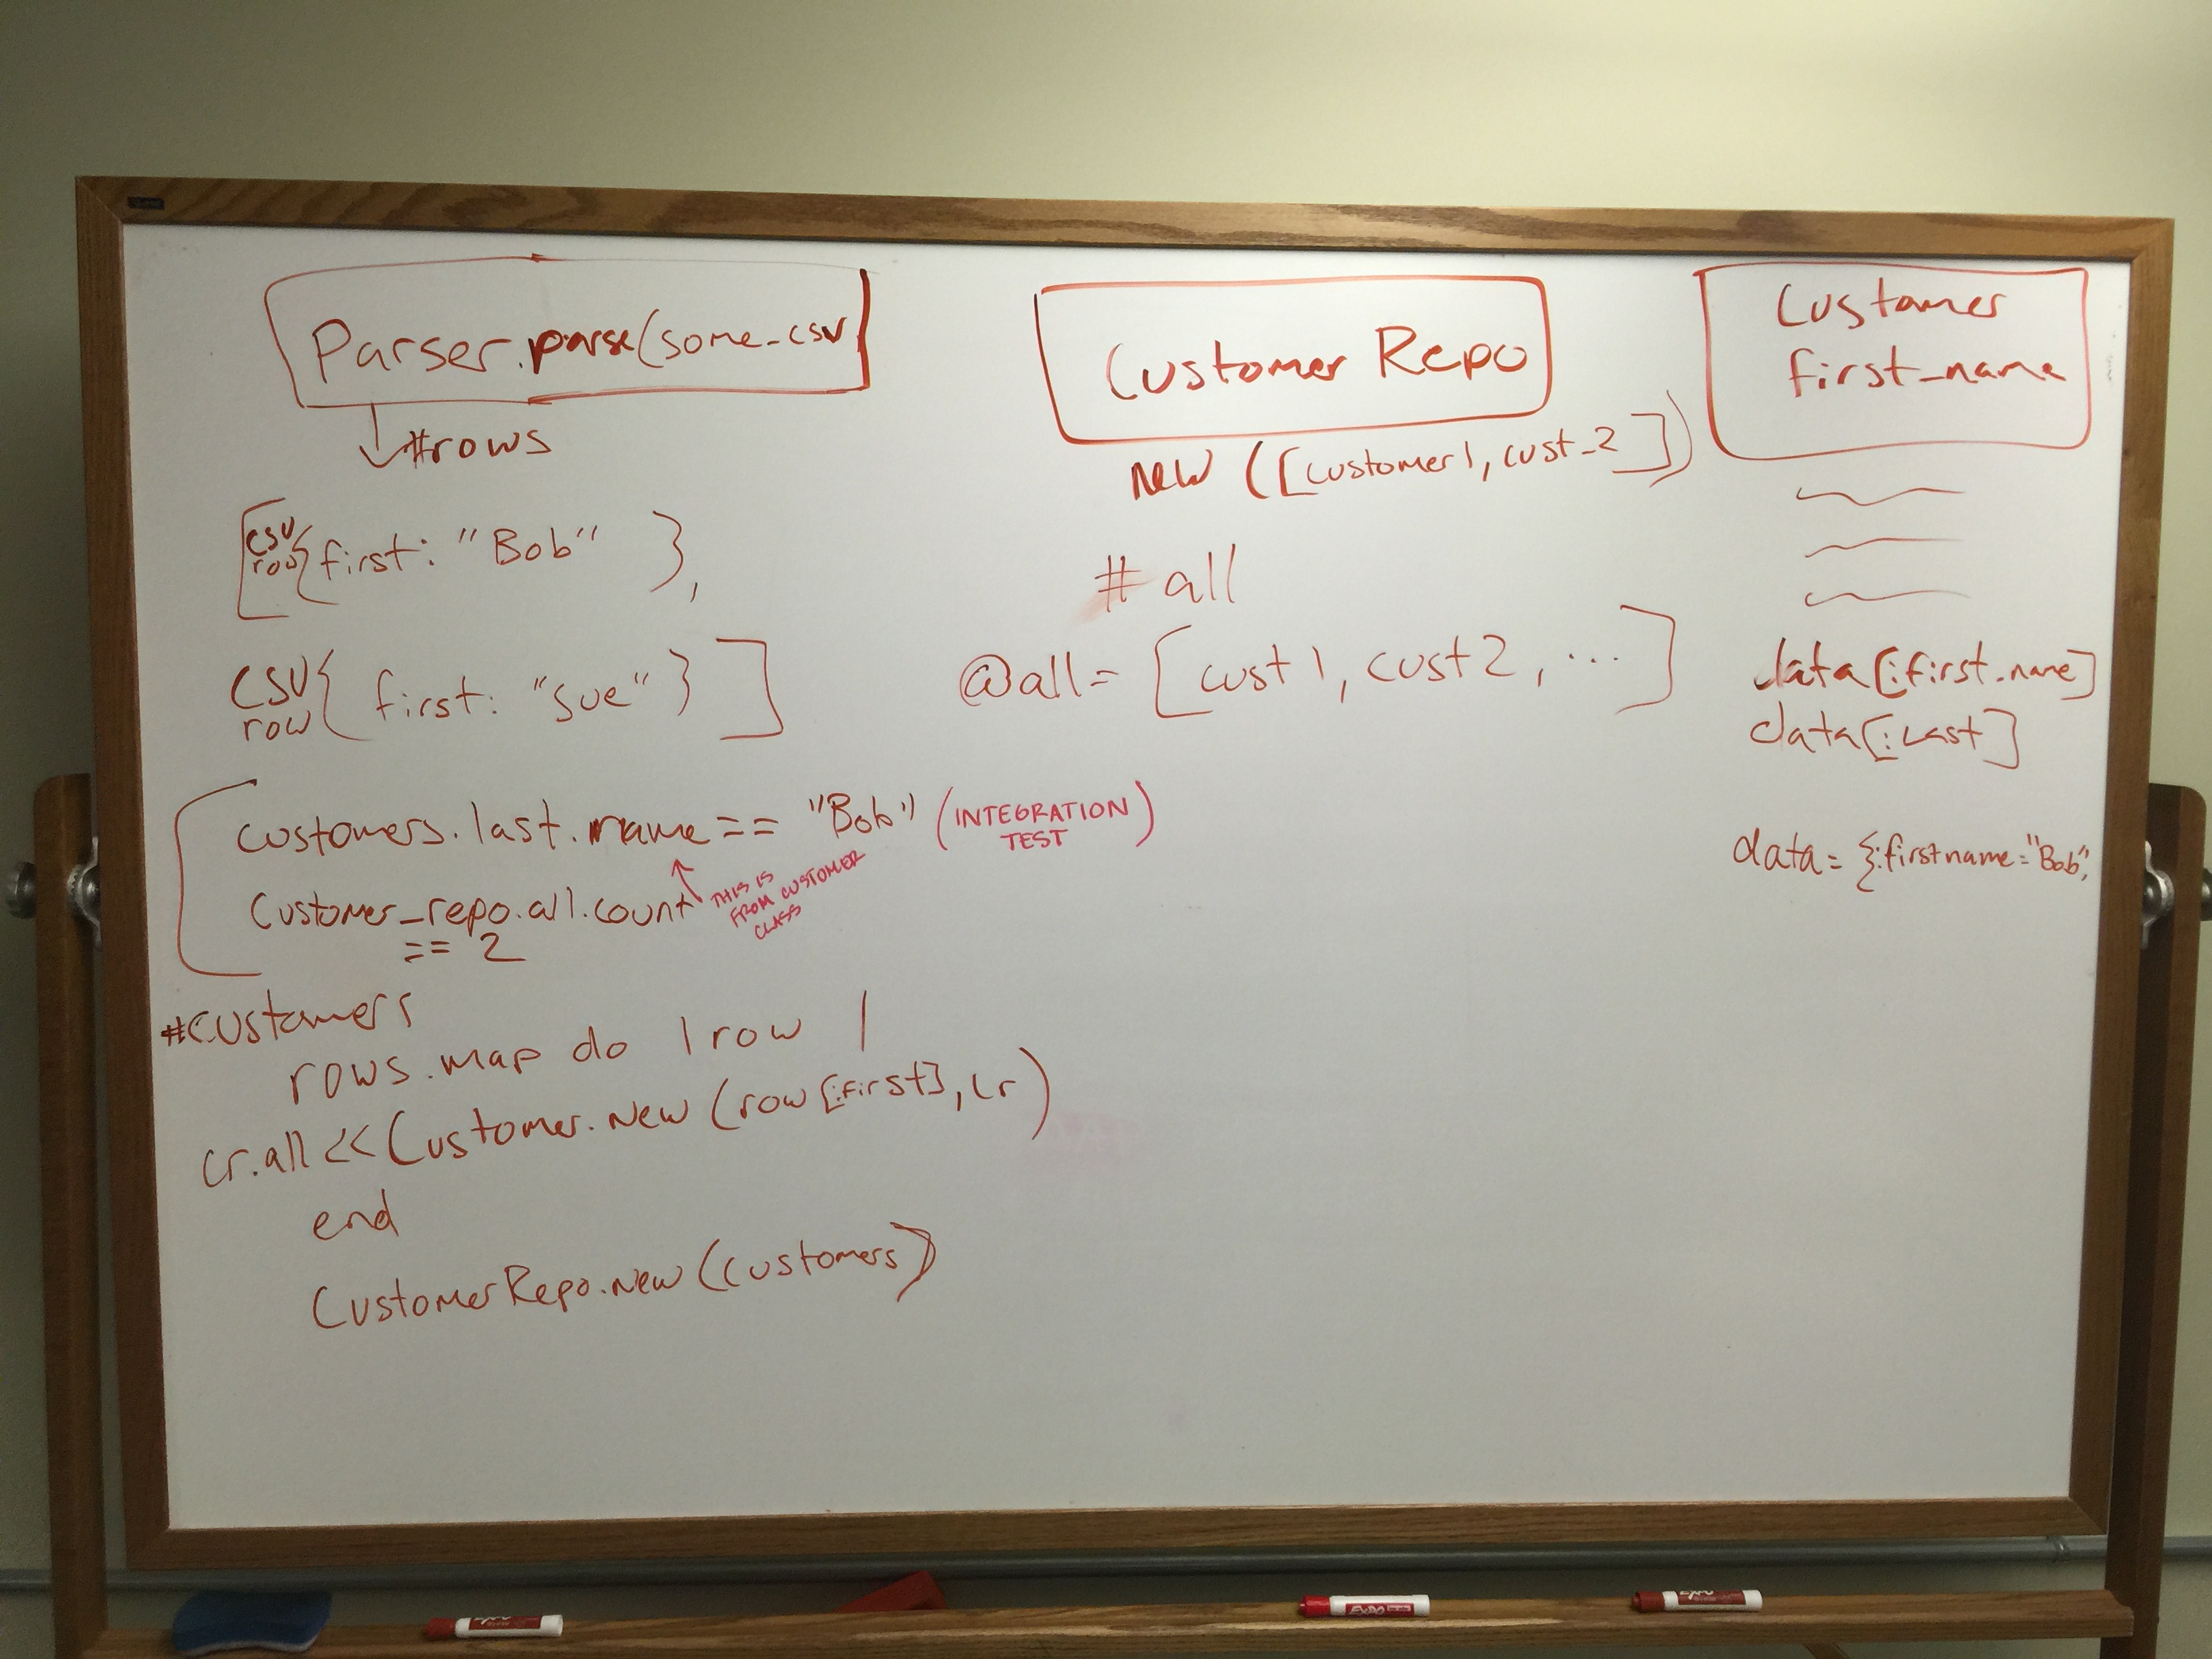 Parser.parse(some_csv
#rows
[csv row{first: "Bob" },
csv row{ first: "Sue" } ]
customers.last.name == "Bob" (INTEGRATION TEST)
THIS IS
FROM CUSTOMER
CLASS
Customer_repo.all.count
== 2
#customers
rows.map do |row |
cr.all << Customer.new (row[:first], cr)
end
CustomerRepo.new (customers)
Customer Repo
new ([customer1, cust_2 ])
# all
@all = [cust1, cust2, ... ]
Customer
first_name
data[:first.name]
data[:Last]
data = {:firstname = "Bob",
EXPO